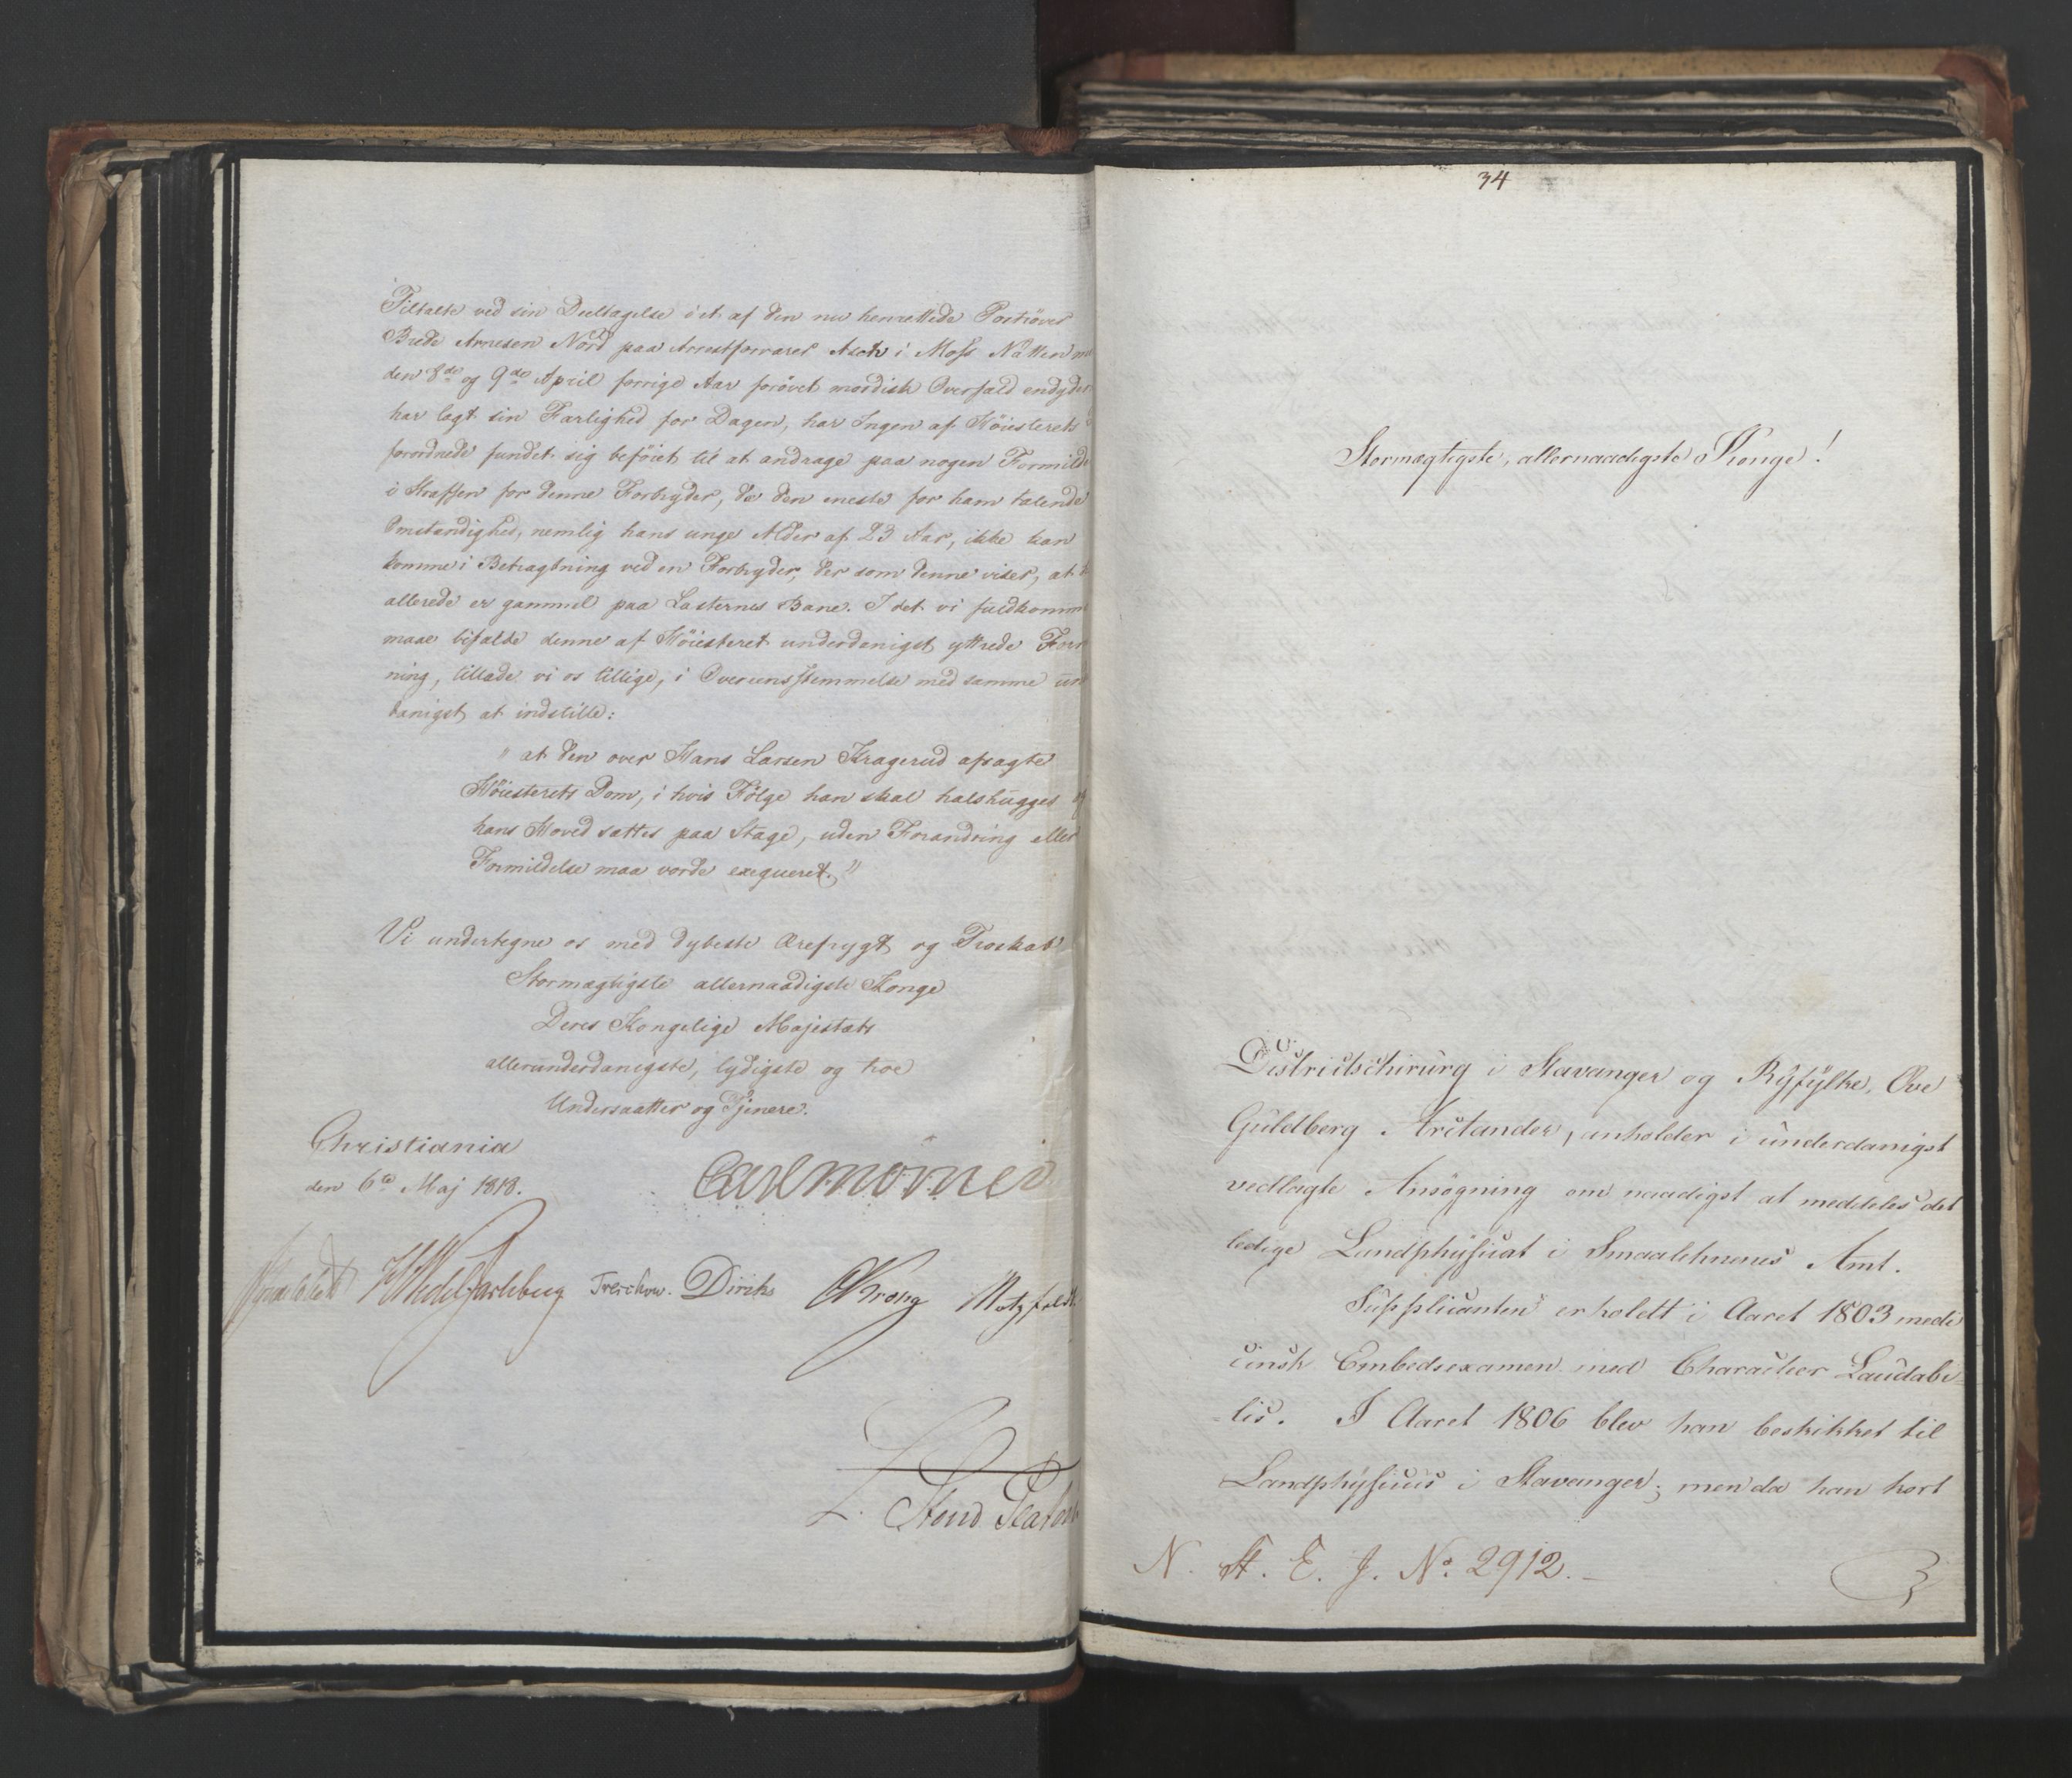 Tiltalte ved sin Deeltagelse i et af den nu henrettede Postrøver
Brede Arnesen Nord paa Arrestforvarer Asch i Moss Natten
den 8de og 9de April forrige Aar forøvet mordisk Overfald endyder
har lagt sin Farlighed for Dagen, har Ingen af Höiesterets
forordnede fundet sig beföiet til at andrage paa nogen Formild
i Straffen for denne Forbryder, da den eneste for ham talende
Omstændighed, nemlig hans unge Alder af 23 Aar, ikke kan
komme i Betragtning ved en Forbryder, der som denne viser, at
allerede er gammel paa Lasternes Bane. I det vi fuldkomm
maae bifalde denne af Höiesteret underdanigst yttrede
ning, tillade vi os tillige, i Overeensstemmelse med samme un
danigst at indstille:
"at den over Hans Larsen Kragerud afsagte
Höiesterets Dom, i hvis Fölge han skal halshugges og
hans Hoved sættes paa Stage, uden Forandring eller
Formildelse maa vorde exequeret."
Vi undertegne os med dybeste Ærefrygt og Troskab
Stormægtigste allernaadigste Konge
Deres Kongelige Majestæts
allerunderdanigste, lydigste og troe
Undersaatter og Tjenere.
Christiania
den 6te Maj 1818.
Carl Mörner
HWedel Jarlsberg Treschow. Diriks Krogh Motzfeldt
34
Stormægtigste, allernaadigste Konge!
Districtschirurg i Stavanger og Ryfylke, Ove
Guldberg Arctander, anholder i underdanigst
vedlagte Ansögning om naadigst at meddeles det
ledige Landphysicat i Smaalehnenes Amt.
Supplicanten erholdt i Aaret 1803 medi
cinsk Embedsexamen med Characteer Laudabi=
=lis. I Aaret 1806 blev han beskikket til
Landphysicus i Stavanger; men da han kort
N. St. E. J. No. 2912.